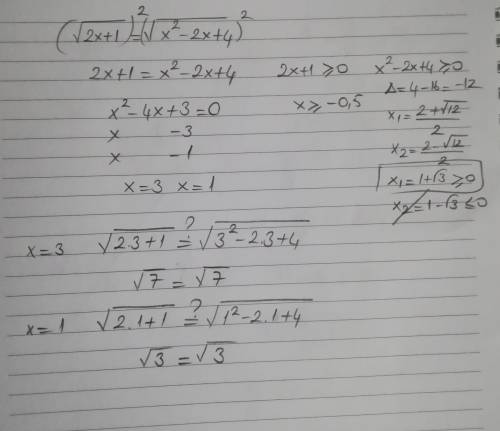 (√(2x+1))² = (√(x²-2x+4))²
2x+1 = x²-2x+4   2x+1 ≥ 0   x²-2x+4 ≥ 0
x²-4x+3=0   x ≥ -0,5   Δ = 4-16 = -12
x   -3   x₁ = (2+√12)/2
x   -1   x₂ = (2-√12)/2
x=3   x=1   x₁ = 1+√3 ≥ 0
x₂ = 1-√3 ≤ 0
x=3   √(2.3+1) ≟ √(3²-2.3+4)
√7 = √7
x=1   √(2.1+1) ≟ √(1²-2.1+4)
√3 = √3